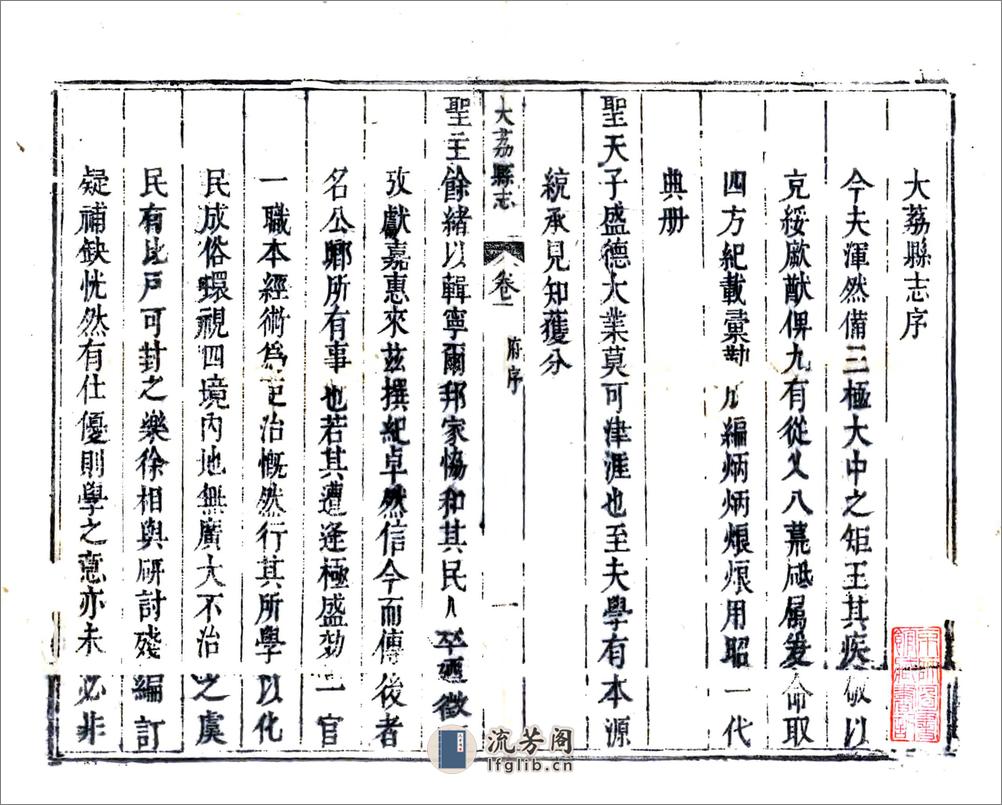 大荔縣志序
今夫渾然備三極大中之矩王其疾敬以
克綏厥猷俾九有從乂八荒砥属爰命取
四方紀載彙勒成編炳炳烺烺用昭一代
典册
聖天子盛德大業莫可津涯也至夫學有本源
統承見知獲分
大荔縣志
卷一
府序
一
聖主餘緒以輯寧爾邦家恊和其民人卒迺徵
攷獻嘉惠來茲撰紀卓然信今而傳後者
名公卿所有事也若其遭逢極盛効一官
一職本經術為吏治慨然行其所學以化
民成俗環視四境內地無廣大不治之虞
民有比戶可封之樂徐相與研討殘編訂
疑補缺恍然有仕優則學之意亦未必非
流芳阁
lfglib.cn